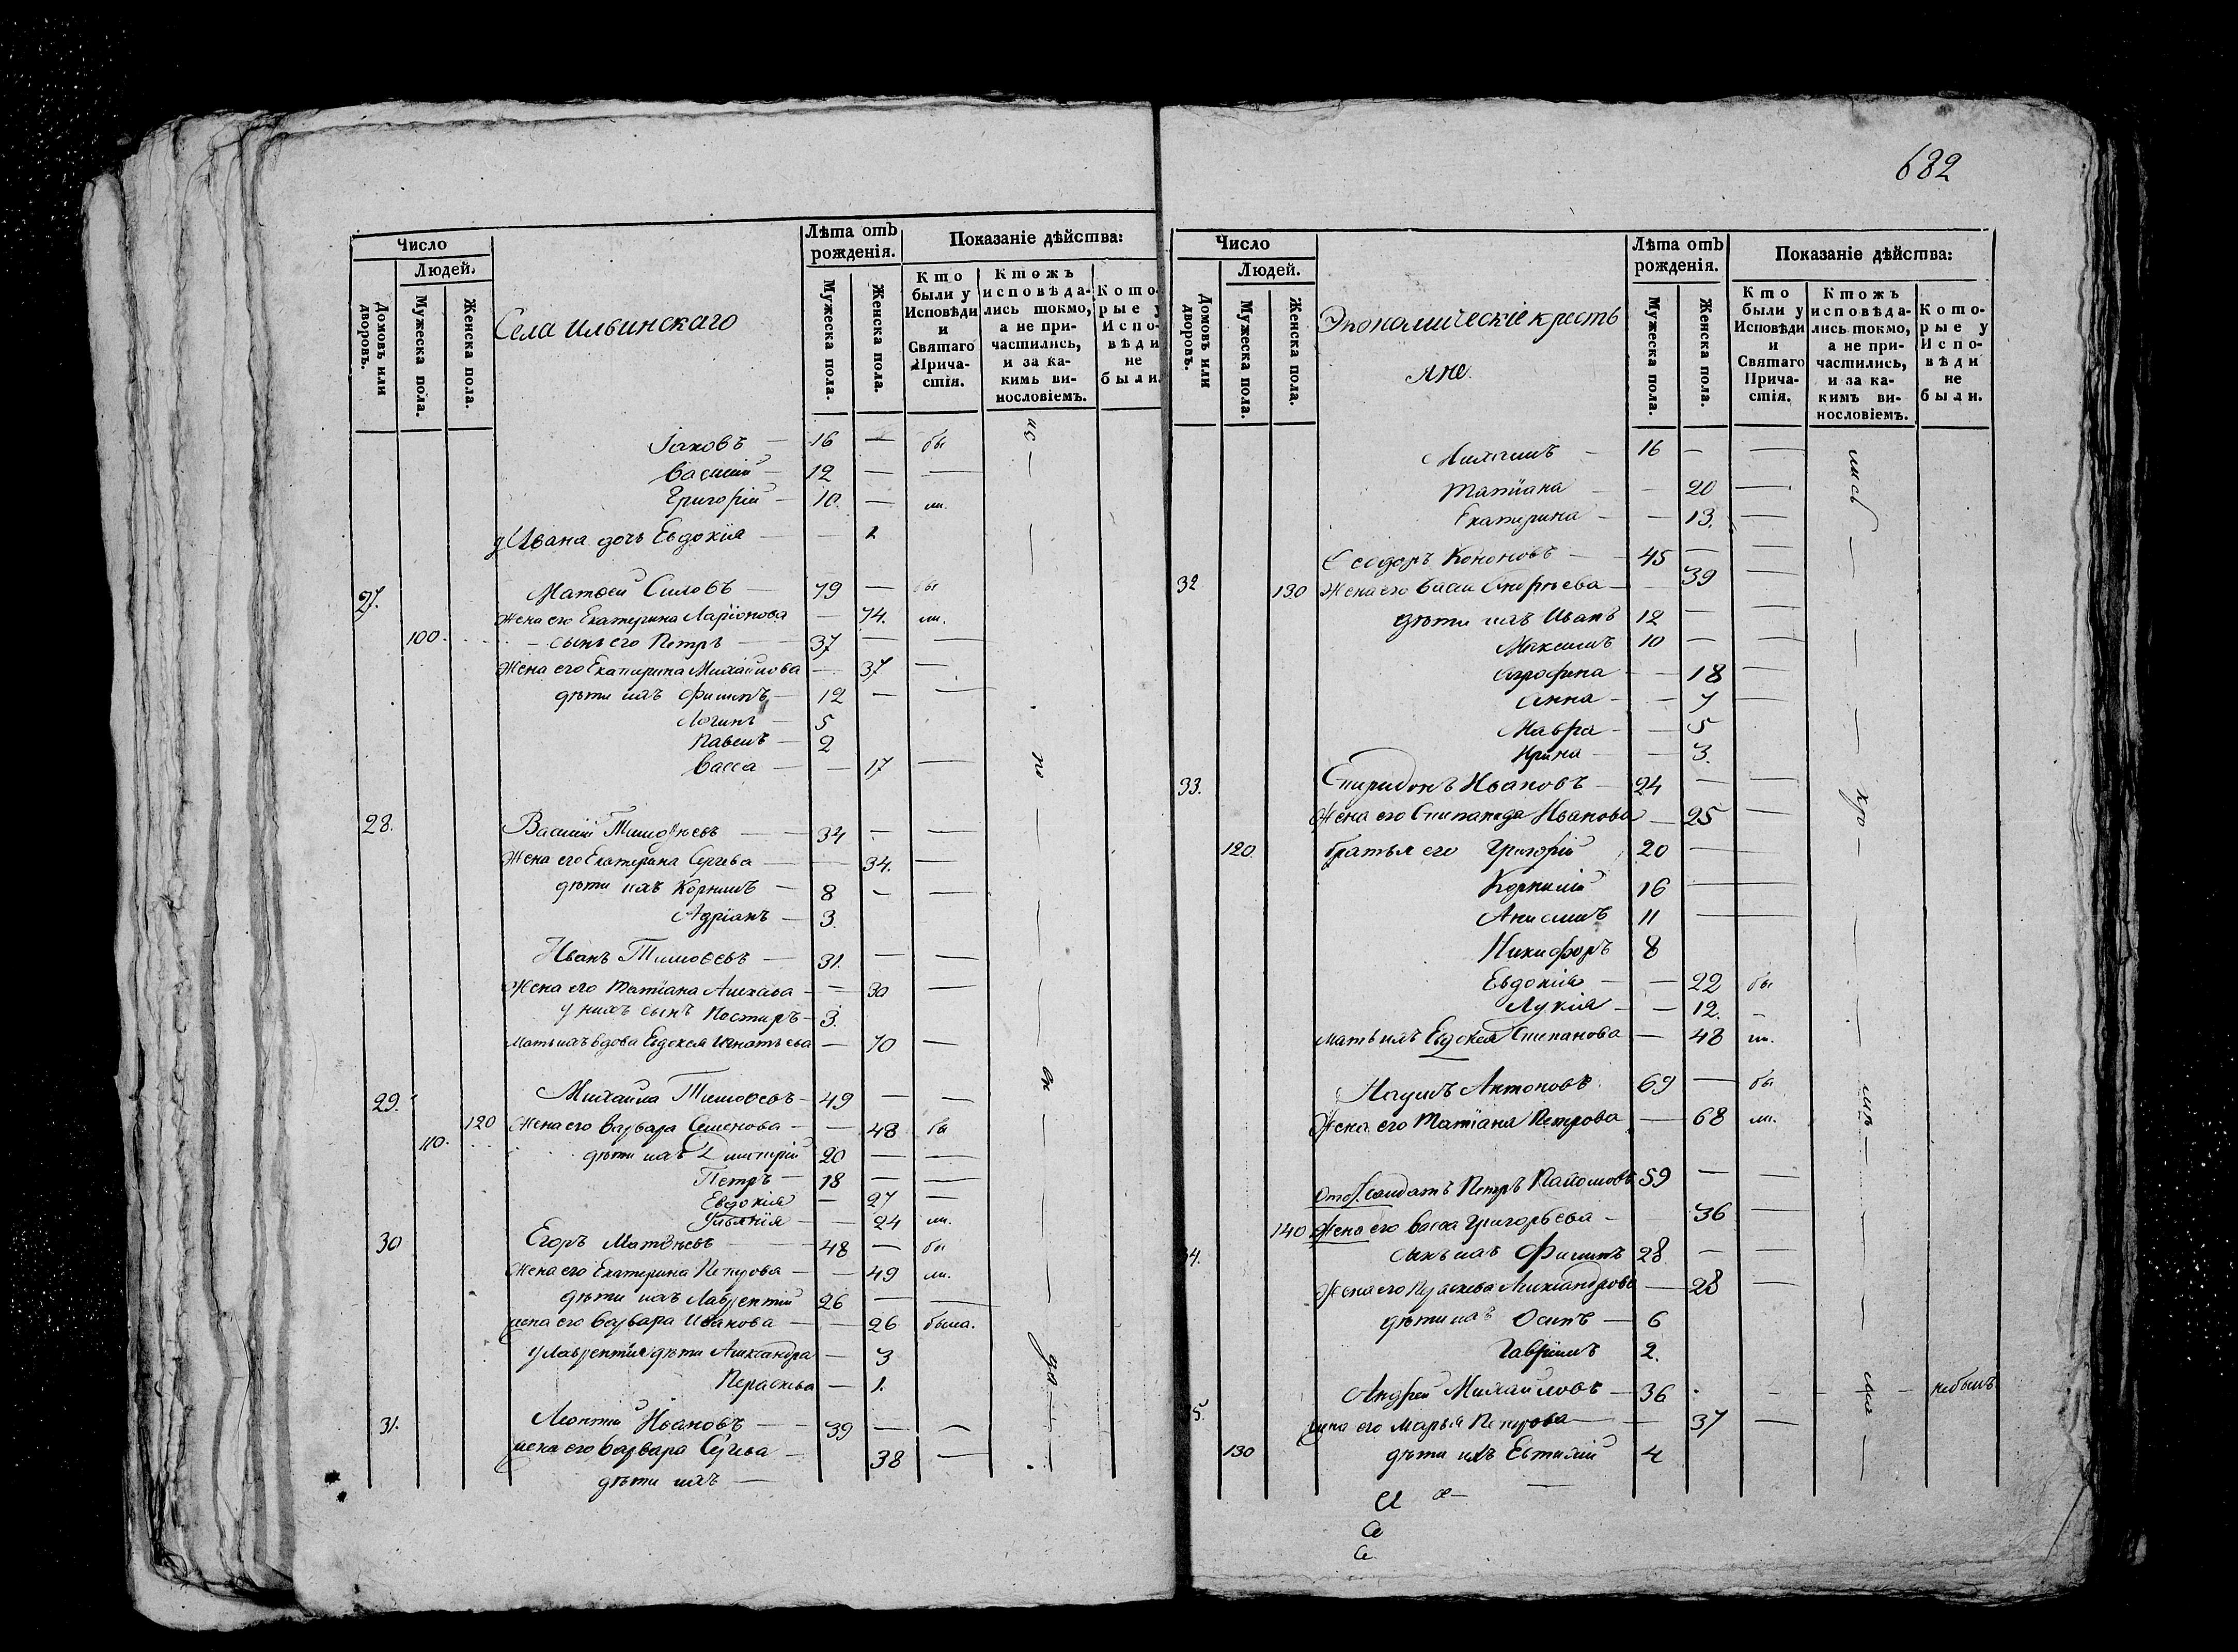 Число
Людей.
Домовъ или дворовъ.
Мужеска пола.
Женска пола.
Села ильинскаго
Лѣта отъ рожденія.
Мужеска пола.
Женска пола.
Показаніе дѣйства:
Кто были у Исповѣди и Святаго Прича-стія.
Ктожъ исповѣда-лись токмо, а не при-частились, и за ка-кимъ ви-нословіемъ.
Кото-рые у Испо-вѣди не были.
Іаковъ — 16 — бы
Василій — 12 — —
Григорій — 10. — ли.
у Ивана дочь Евдокія — — 2
27. Матѳей Силовъ — 79 — бы
жена его Екатерина Ларіонова — 74. ли.
100. — сынъ его Петръ — 37 — —
Жена его Екатерина Михайлова — 37 —
дѣти ихъ Филипъ — 12 — —
Логинъ — 5
Павелъ — 2
Васса — — 17 —
28. Василій Тимоѳѣевъ — 34 — —
Жена его Екатерина Сергѣева — — 34. —
дѣти ихъ Корнилъ — 8 — —
Адріанъ — 3.
Иванъ Тимоѳевъ — 31. — —
Жена его Татіана — — 30 —
у нихъ сынъ — 3.
мать ихъ вдова Евдокея Игнатьева — 70 —
29. Михаила Тимоѳевъ — 49 — —
120 Жена его Варвара Семенова — — 48 бы
110. дѣти ихъ Димитрій 20 — —
Петръ — 18 — —
Евдокія — 27 —
Ульянія — — 24 ли.
30 Егоръ Матвѣевъ — 48 — бы
Жена его Екатерина Петрова — — 49 ли.
дѣти ихъ Лаврентій 26 — —
жена его Варвара Иванова — — 26 была.
у Лаврентия дѣти Александра — 3
Параскева — 1.
31. Леонтій Ивановъ — 39 — —
жена его Варвара Сергѣева — 38 —
дѣти ихъ —
682
Число
Людей.
Домовъ или дворовъ.
Мужеска пола.
Женска пола.
Экономическіе кресть
яне.
Лѣта отъ рожденія.
Мужеска пола.
Женска пола.
Показаніе дѣйства:
Кто были у Исповѣди и Святаго Прича-стія.
Ктожъ исповѣда-лись токмо, а не при-частились, и за ка-кимъ ви-нословіемъ.
Кото-рые у Испо-вѣди не были.
Михаилъ — 16 — —
Татіана — — 20 —
Екатерина — — 13. —
Ѳеодоръ Кононовъ — 45 — —
32 130 Жена его — 39 —
дѣти ихъ Иванъ 12 — —
Максимъ 10 — —
Агрофена — — 18 —
Анна — — 7
Мавра — — 5
Ирина — — 3.
33. Спиридонъ Ивановъ — 24 — —
Жена его Степанида Иванова — 25 —
120 братья его Григорій 20 —
Корнилій 16 —
Анисимъ 11 —
Никифоръ 8
Евдокія — — 22 бы
Лукія — — 12. —
мать ихъ Евдокея Степанова — 48 ли.
Наумъ Антоновъ 69 — бы
Жена его Татіана Петрова — 68 ли.
солдатъ Петръ 59 — —
140 Жена его Васса Григорьева — 36 —
34. сынъ ихъ Филипъ 28 — —
Жена его Параскева Александрова — 28 —
дѣти ихъ Осипъ — 6
Гавріилъ 2.
Андрей Михайловъ — 36 — — небылъ
жена его Марья Петрова — — 37 —
130 дѣти ихъ Евтихій 4